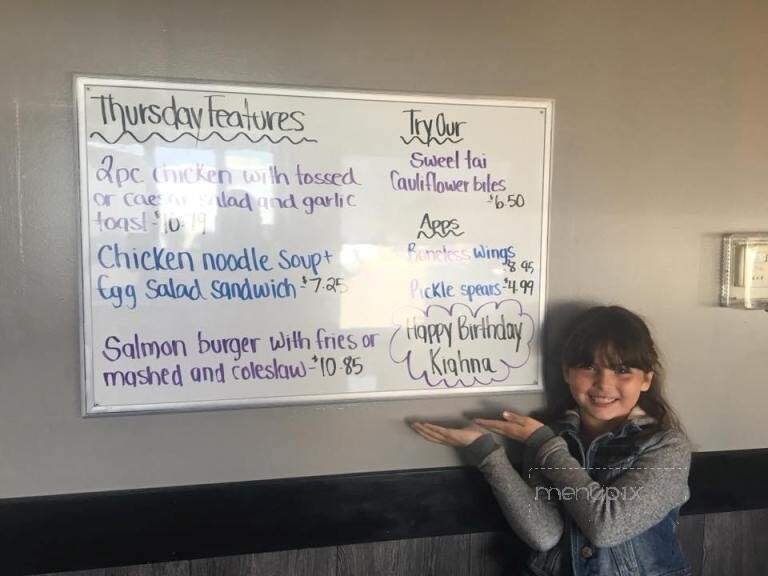 Thursday Features
2pc chicken with tossed
or caesar salad and garlic
toast - $10.79
Chicken noodle Soup +
Egg Salad Sandwich - $7.25
Salmon burger with fries or
mashed and coleslaw - $10.85
Try Our
Sweet tai
Cauliflower bites
$6.50
Apps
Boneless wings
$8.95
Pickle spears - $4.99
Happy Birthday
Kiahna
menupix